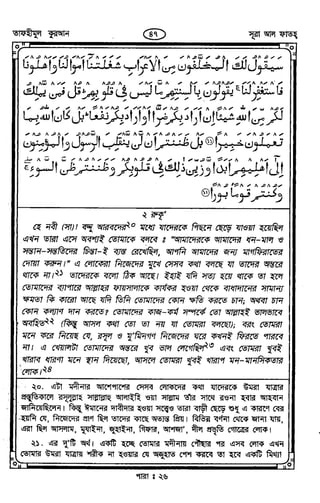 তাফহীমুল কুরআন
৪৭
সূরা আল ফাতহ
سَيَقُولُ لَكَ الْمُخَلَّفُونَ مِنَ الْأَعْرَابِ شَغَلَتْنَا أَمْوَالُنَا وَأَهْلُونَا
فَاسْتَغْفِرْ لَنَا يَقُولُونَ بِأَلْسِنَتِهِمْ مَا لَيْسَ فِي قُلُوبِهِمْ قُلْ فَمَنْ يَمْلِكُ
لَكُمْ مِنَ اللَّهِ شَيْئًا إِنْ أَرَادَ بِكُمْ ضَرًّا أَوْ أَرَادَ بِكُمْ نَفْعًا بَلْ كَانَ اللَّهُ بِمَا
تَعْمَلُونَ خَبِيرًا ⑪ بَلْ ظَنَنْتُمْ أَنْ لَنْ يَنْقَلِبَ الرَّسُولُ وَالْمُؤْمِنُونَ
إِلَى أَهْلِيهِمْ أَبَدًا وَزُيِّنَ ذَلِكَ فِي قُلُوبِكُمْ وَظَنَنْتُمْ ظَنَّ السَّوْءِ
وَكُنْتُمْ قَوْمًا بُورًا ⑫
২ রুকূ'
হে নবী (সা)! বদ্দু আরবদের২০ মধ্যে যাদেরকে পিছনে ছেড়ে যাওয়া হয়েছিল
এখন তারা এসে অবশ্যই তোমাকে বলবে ঃ "আমাদেরকে আমাদের ধন-মাল ও
সন্তান-সন্ততিদের চিন্তা-ই ব্যস্ত রেখেছিল, আপনি আমাদের জন্য মাগফিরাতের
দোয়া করুন।" এ লোকেরা নিজেদের মুখে সেসব কথা বলছে যা তাদের অন্তরে
থাকে না।২১ তাদেরকে বলো ঠিক আছে। ইহাই যদি সত্য হয়ে থাকে তা হলে
তোমাদের ব্যাপারে আল্লাহর ফায়সালাকে কার্যকর হওয়া থেকে বাধাদানের সামান্য
ক্ষমতা কি কারো আছে যদি তিনি তোমাদের কোন ক্ষতি করতে চান; অথবা চান
কোন কল্যাণ দান করতে? তোমাদের কাজ-কর্ম সম্পর্কে তো আল্লাহই ভালভাবে
অবহিত২২ (কিন্তু আসল কথা তো তা নয় যা তোমরা বলছো); বরং তোমরা
মনে করে নিয়েছ যে, রসূল ও মু'মিনগণ নিজেদের ঘরে কখনই ফিরতে পারবে
না। এ খেয়ালটা তোমাদের অন্তরে খুব ভাল লেগেছিল২৩ এবং তোমরা খুবই
খারাপ ধারণা মনে স্থান দিয়েছো, আসলে তোমরা খুবই খারাপ মন-মানসিকতার
লোক।২৪
২০. এটা মদীনার আশেপাশের সেসব লোকদের কথা যাদেরকে উমরা যাত্রার
প্রস্তুতিকালে রসূলুল্লাহ সাল্লাল্লাহু আলাইহি ওয়া সাল্লাম তাঁর সাথে রওনা হবার আহবান
জানিয়েছিলেন। কিন্তু ঈমানের দাবীদার হওয়া সত্ত্বেও তারা বাড়ী ছেড়ে শুধু এ কারণে বের
হয়নি যে, নিজেদের প্রাণ ছিল তাদের কাছে অত্যন্ত প্রিয়। বিভিন্ন বর্ণনা থেকে জানা যায়,
এরা ছিল আসলাম, মুযাইনা, জুহাইনা, গিফার, আশজা', দীল প্রভৃতি গোত্রের লোক।
২১. এর দু'টি অর্থ। একটি হচ্ছে তোমার মদীনায় পৌঁছার পর এসব লোক এখন
তোমার উমরা যাত্রায় শরীক না হওয়ার যে অজুহাত পেশ করবে তা হবে একটি মিথ্যা
পারা ঃ ২৬